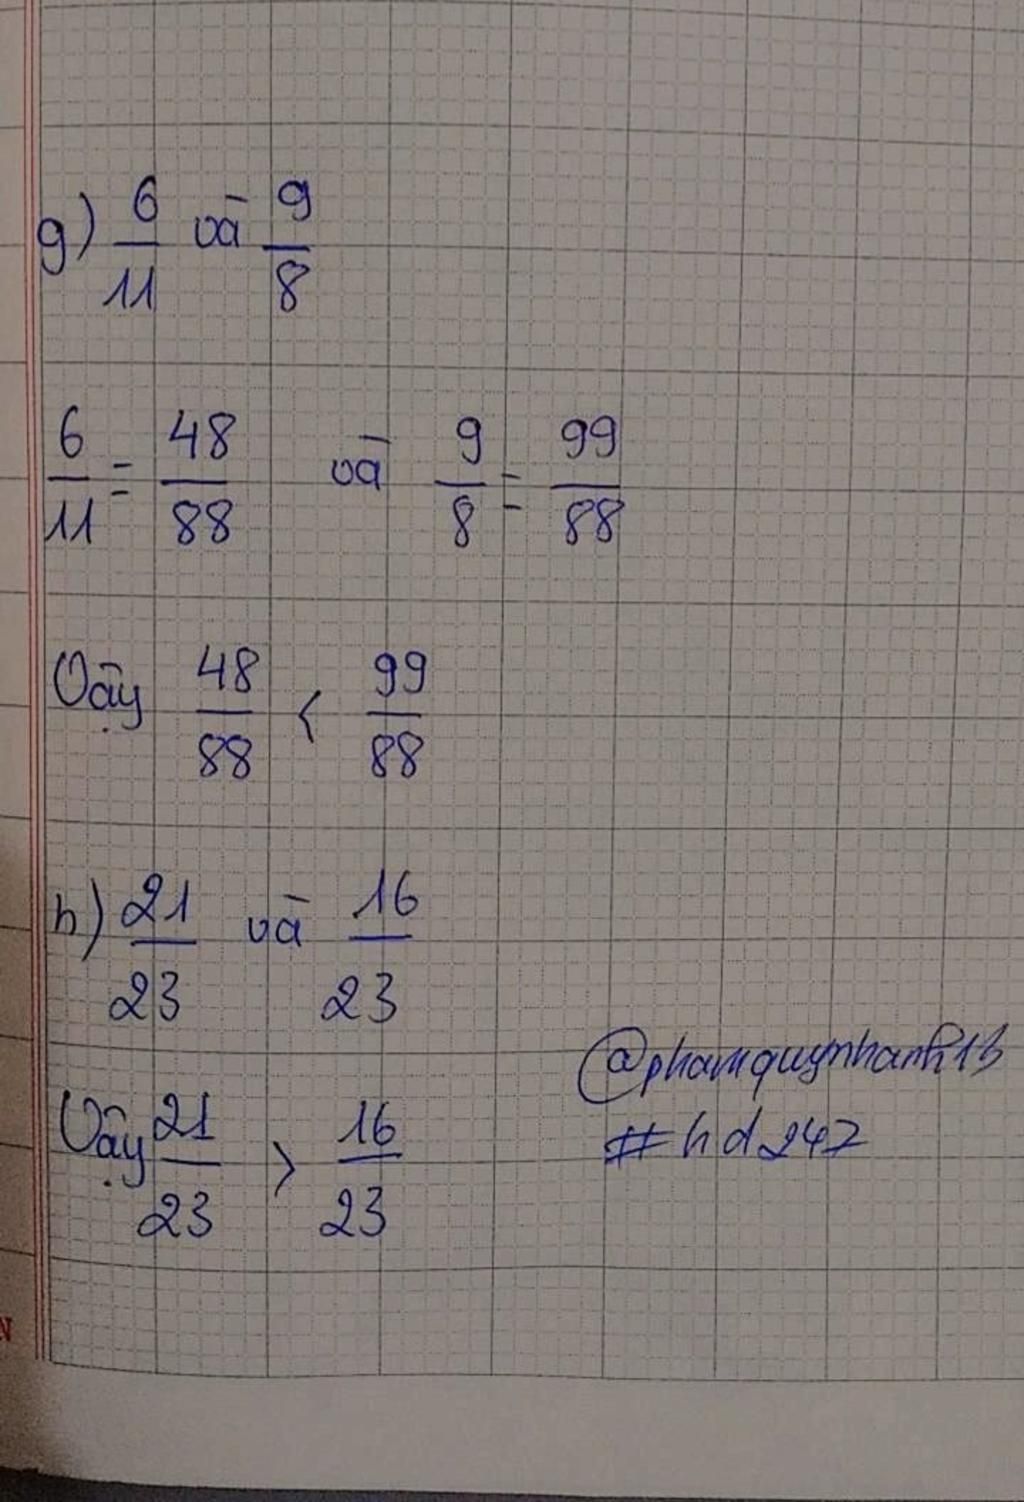 g) 6/11 và 9/8
6/11 = 48/88 và 9/8 = 99/88
Vậy 48/88 < 99/88
h) 21/23 và 16/23
Vậy 21/23 > 16/23
@phamquynhanh13
#hd247
N